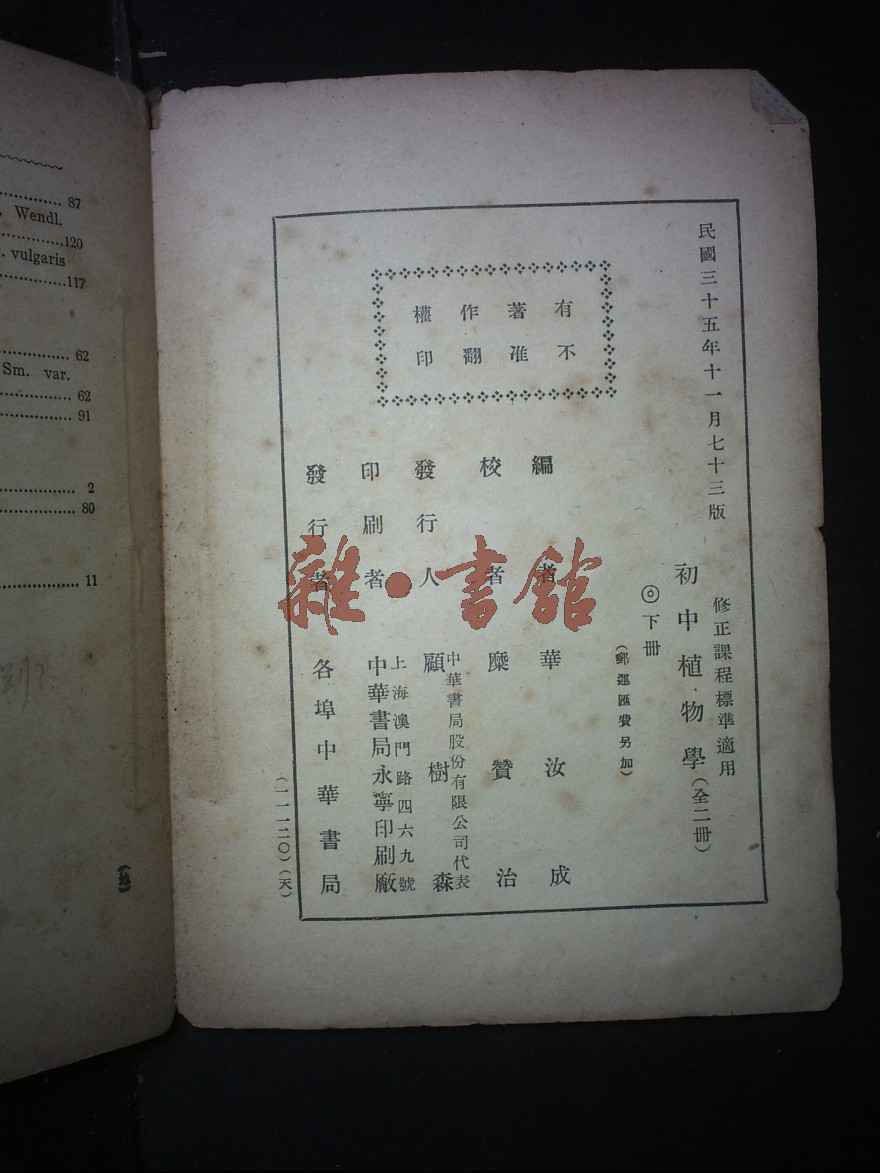 87
Wendl.
120
vulgaris
117
62
Sm. var.
62
91
2
80
11
民國三十五年十一月七十三版
修正課程標準適用
初中植物學(全二冊)
◎下冊
(郵運匯費另加)
有著作權
不准翻印
編者 華汝成
校者 糜贊治
發行人 顧樹森
中華書局股份有限公司代表
印刷者 上海澳門路四六九號
中華書局永寧印刷廠
發行者 各埠中華書局
(一一一二〇)(天)
雜·書館